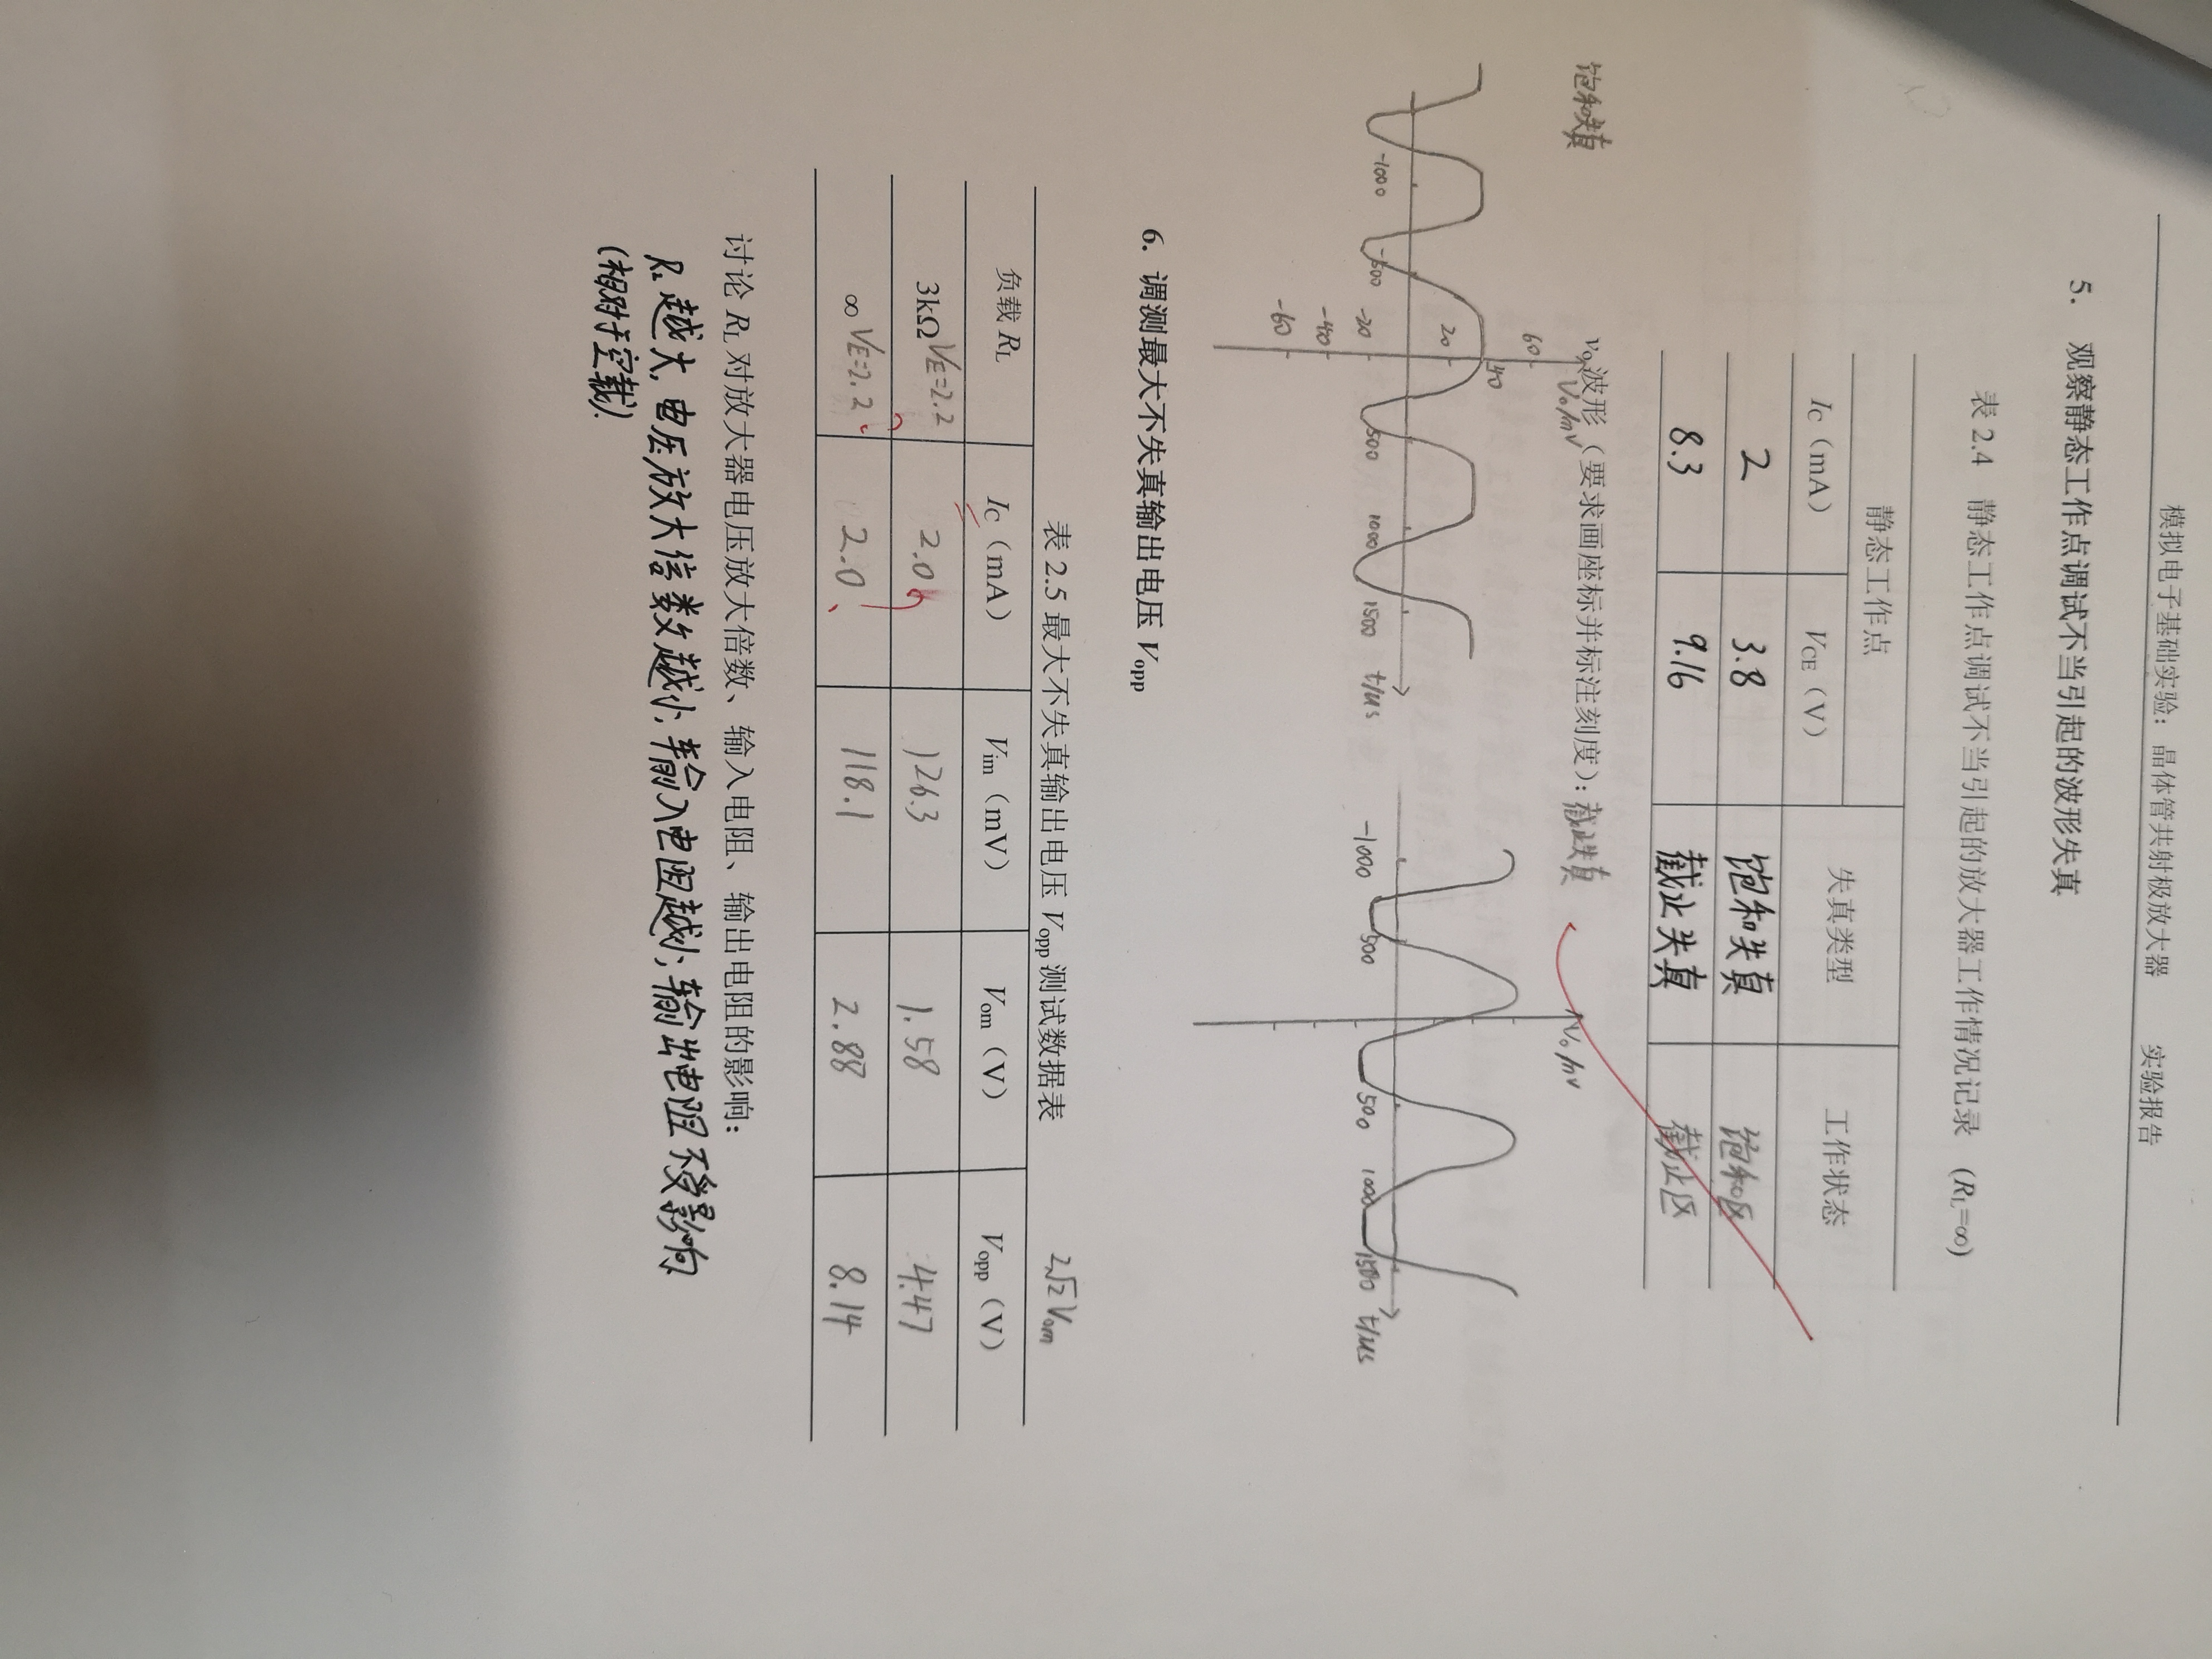 模拟电子基础实验：晶体管共射极放大器 实验报告
5. 观察静态工作点调试不当引起的波形失真
表 2.4 静态工作点调试不当引起的放大器工作情况记录 (RL=∞)
静态工作点 失真类型 工作状态
IC（mA） VCE（V）
2 3.8 饱和失真 饱和区
8.3 9.16 截止失真 截止区
饱和失真 vo 波形（要求画座标并标注刻度）：截止失真
Vo/mV Vo/mv
60
40
20
-1000 -500 500 1000 1500 t/μs
-20
-40
-60
-1000 500 500 1000 1500 t/μs
6. 调测最大不失真输出电压 Vopp
表 2.5 最大不失真输出电压 Vopp 测试数据表 2√2Vom
负载 RL IC（mA） Vim（mV） Vom（V） Vopp（V）
3kΩ VE=2.2 2.0 126.3 1.58 4.47
∞ VE=2.2 2.0 118.1 2.88 8.14
讨论 RL 对放大器电压放大倍数、输入电阻、输出电阻的影响：
RL越大，电压放大倍数越小；输入电阻越小；输出电阻不受影响
(相对于空载).